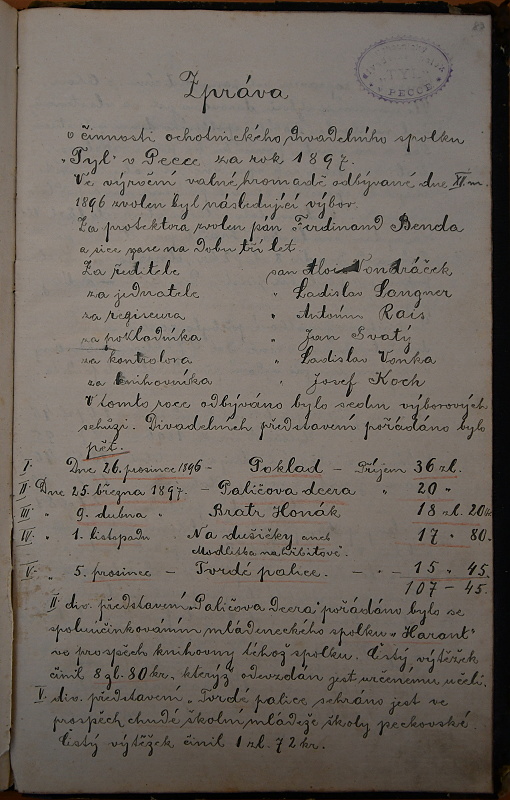 Zpráva
"TYL"
V PECCE
o činnosti ochotnického divadelního spolku
"Tyl" v Pecce za rok 1897.
Ve výroční valné hromadě odbývané dne XII. m.
1896 zvolen byl následující výbor.
Za protektora zvolen pán Ferdinand Benda
a sice zase na dobu tří let
Za ředitele pan Alois Vondráček
za jednatele " Ladislav Langner
za regiseura " Antonín Rais
za pokladníka " Jan Svatý
za kontrolora " Ladislav Vonka
za knihovníka " Josef Koch
V tomto roce odbýváno bylo sedm výborových
schůzí. Divadelních představení pořádáno bylo
pět.
I. Dne 26. prosince 1896 - Poklad - Příjem 36 zl.
II. Dne 25. března 1897. - Paličova dcera " 20 "
III. " 9. dubna " Bratr Honák 18 zl. 20 kr
IV. " 1. listopadu Na dušičky aneb 17 " 80.
Modlitba na hřbitově.
V. " 5. prosince - Tvrdé palice. - " - 15 " 45.
107 - 45.
II. div. představení "Paličova Dcera" pořádáno bylo se
spoluúčinkováním mládeneckého spolku "Harant"
ve prospěch knihovny téhož spolku. Čistý výtěžek
činil 8 zl. 80 kr., kterýž odevzdán jest určenému účeli.
V. div. představení "Tvrdé palice sehráno jest ve
prospěch chudé školní mládeže školy peckovské.
Čistý výtěžek činil 1 zl. 72 kr.